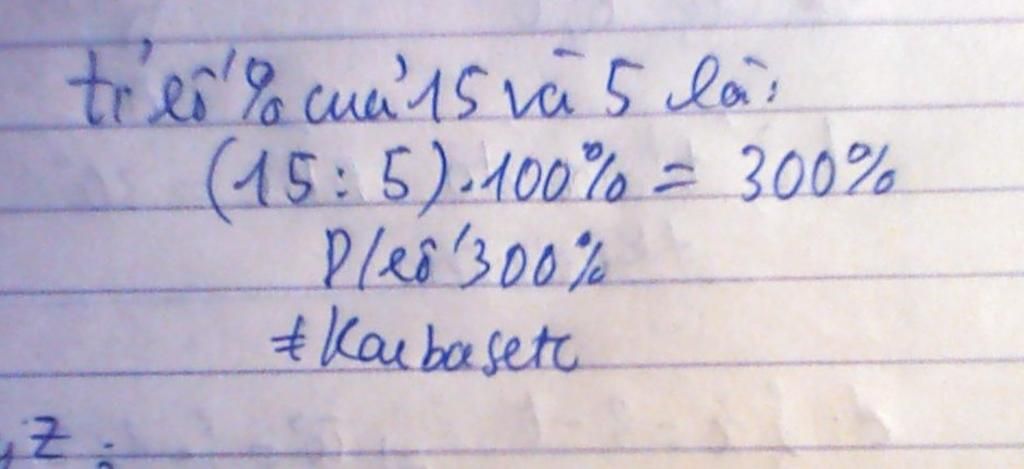 tỉ số % của 15 và 5 là:
(15 : 5) . 100% = 300%
Đ/số 300%
, Z :